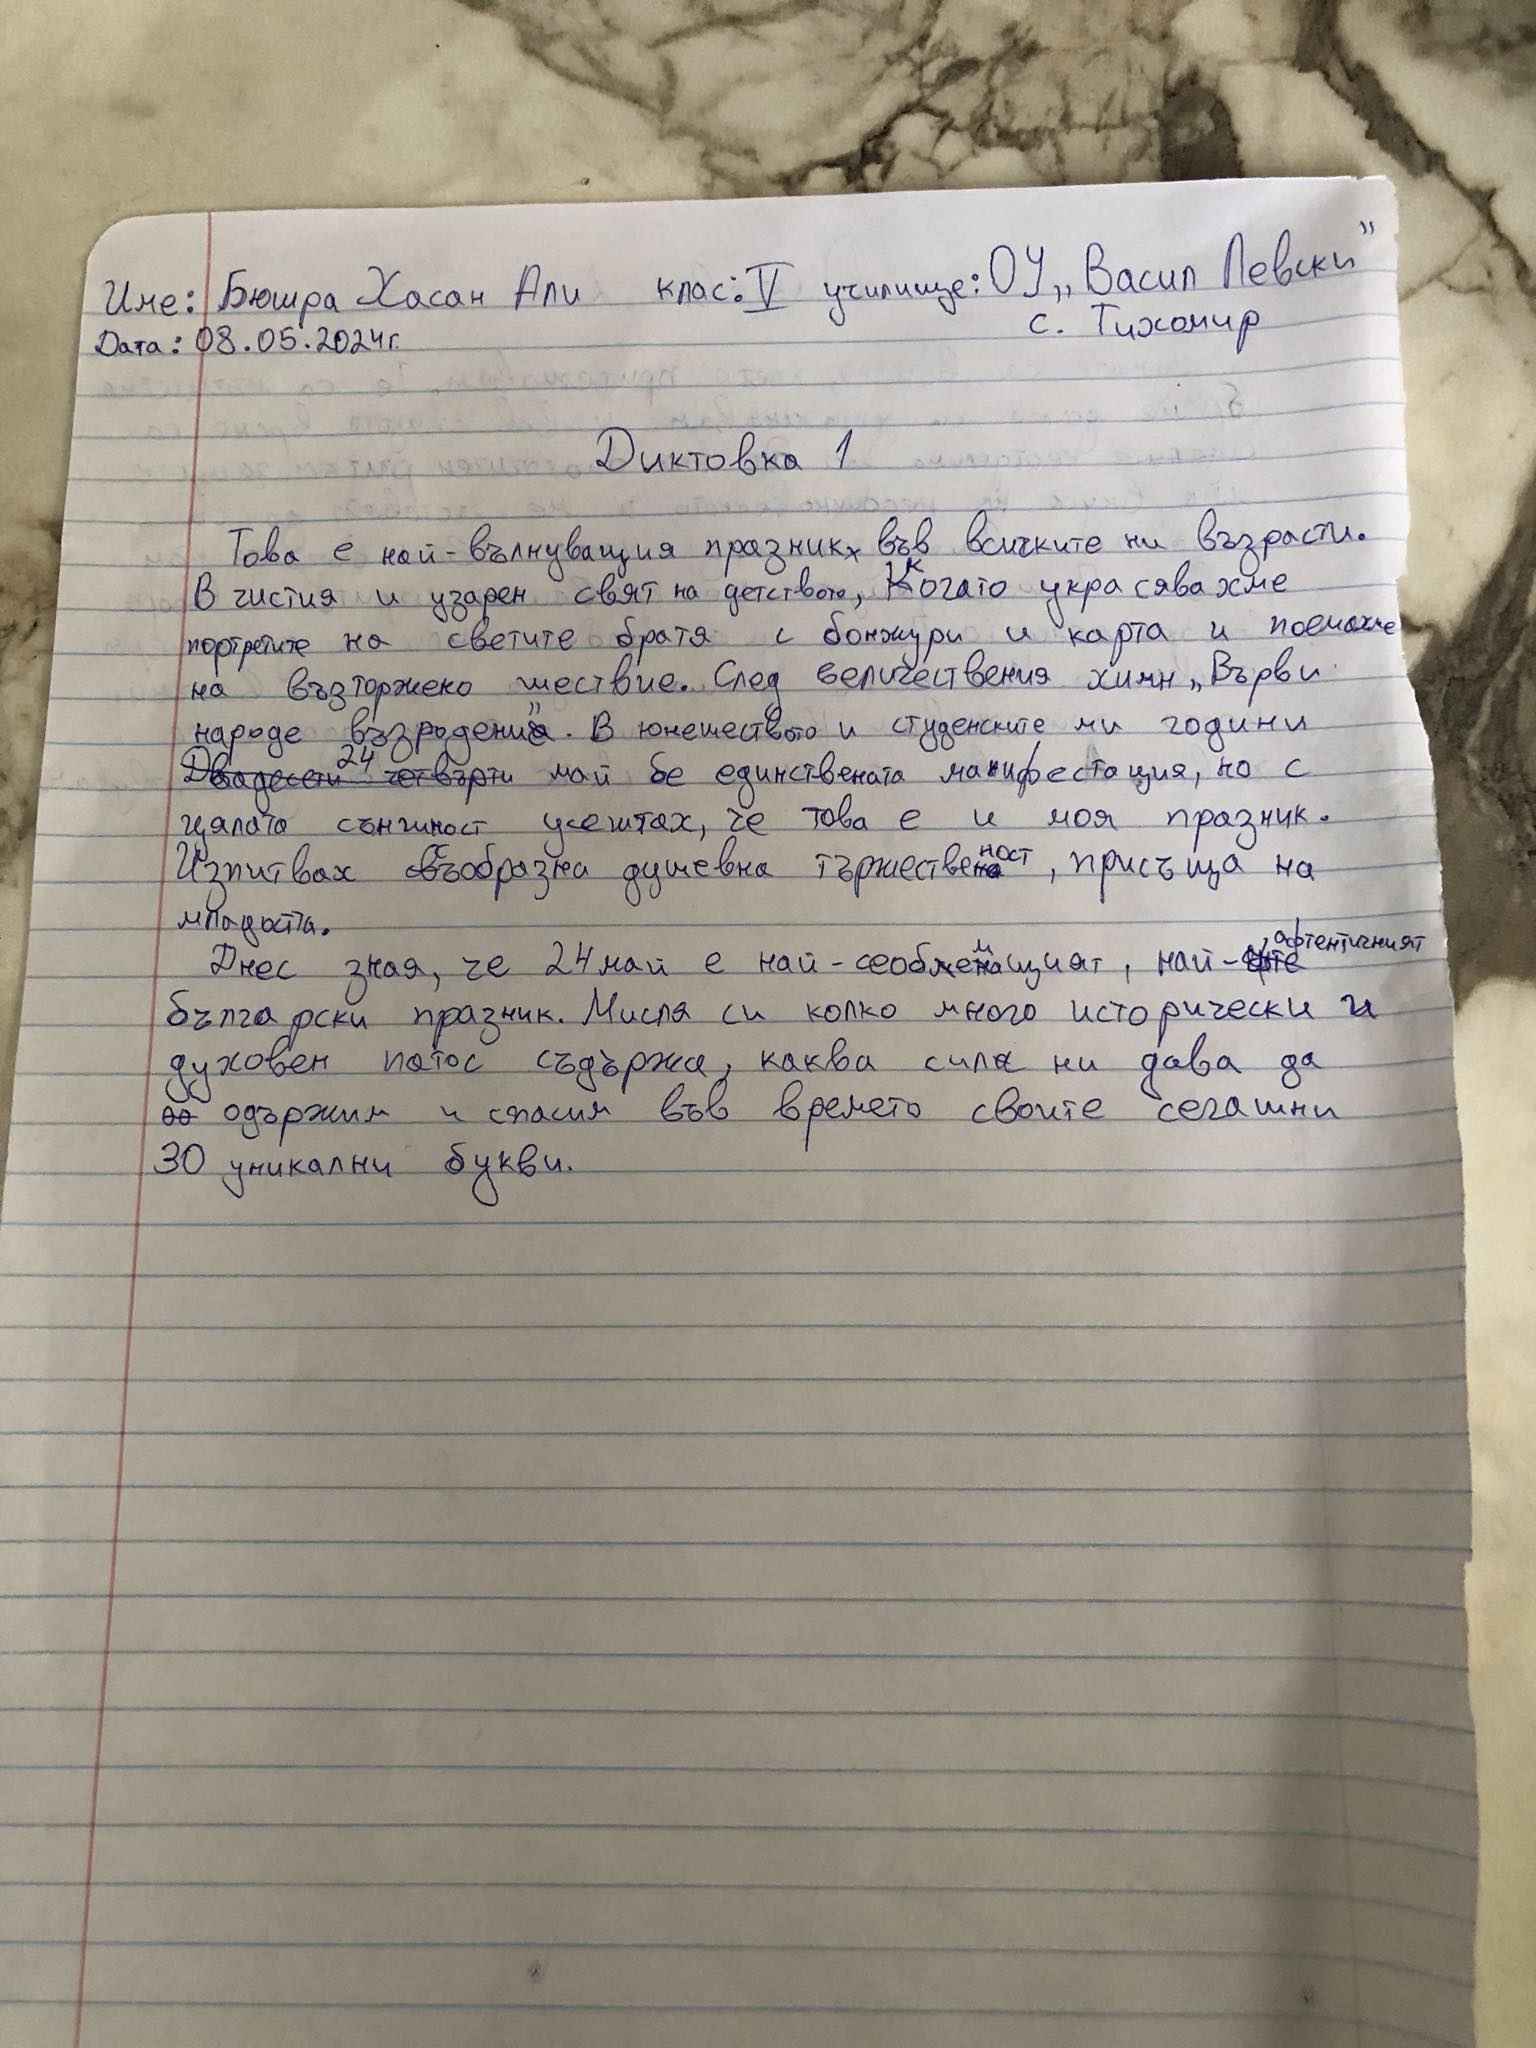 Име: Бюшра Хасан Али клас: V училище: ОУ „Васил Левски"
с. Тихомир
Дата: 08.05.2024г.
Диктовка 1
Това е най-вълнуващия празник във всичките ни възрасти.
В чистия и узарен свят на детството, когато украсявахме
портретите на светите братя с бонжури и карта и поемахме
на възторжено шествие. След величествения химн „Върви
народе възродени". В юнешеството и студенските ми години
24 май бе единствената манифестация, но с
цялата сънчност усештах, че това е и моя празник.
Изпитвах своъобразна душевна тържественост, присъща на
младостта.
Днес зная, че 24 май е най-, най-афтентичният
български празник. Мисля си колко много исторически и
духовен патос съдържа, каква сила ни дава да
одържим и спасим във времето своите сегашни
30 уникални букви.